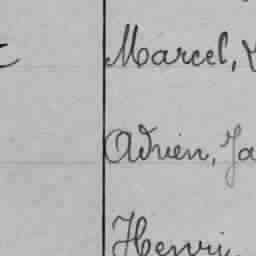 Marcel,
Adrien, Ja
Henri,